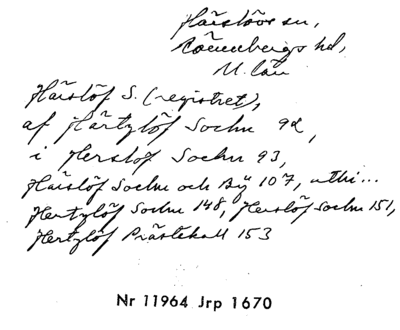 Härslövs sn,
Rönnebergs hd,
M. län
Härslöf S. (registret),
af Härtzlöf Sochn 92,
i Herslöf Sochn 93,
Härslöf Sochn och By 107, uthi...
Hertzlöf Sochn 148, Herslöf Sochn 151,
Hertzlöf Prästekall 153
Nr 11964 Jrp 1670